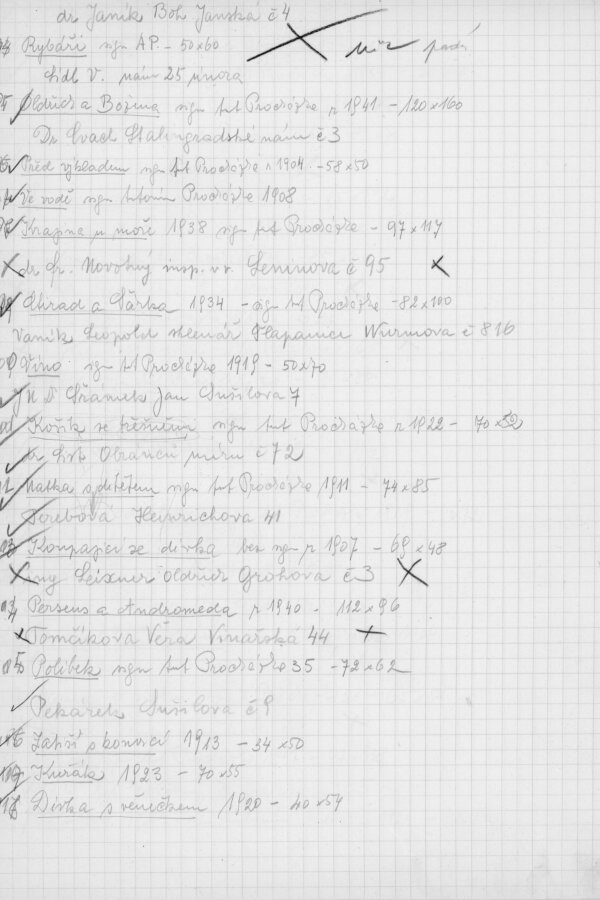 dr Janík Boh. Janská č 4
Rybáři sign AP. - 50x60
Lidl V. nám 25 února
Oldřich a Božena sign Ant Procházka r 1941 - 120x160
Dr Cvach Stalingradské nám č 3
Před výkladem sign Ant Procházka r 1904 - 58x50
Ve vodě sign Antonín Procházka 1908
Krajina u moře 1938 sign Ant Procházka - 97x117
dr Fr. Novotný insp. v.v. Leninova č 95
Ctirad a Šárka 1934 - sign Ant Procházka - 82x100
Vaník Leopold Šlapanice Wurmova č 816
Víno sign Ant Procházka 1919 - 50x70
Šrámek Jan Sušilova 7
Košík se třešněmi sign Ant Procházka r 1922 - 70x52
dr Obránců míru č 72
Matka s dítětem sign Ant Procházka 1911 - 74x85
Terebová Heinrichova 41
Koupající se dívka bez sign r 1907 - 69x48
ing Leixner Oldřich Grohova č 3
Perseus a Andromeda r 1940 - 112x96
Tomčíkova Věra Vinařská 44
Polibek sign Ant Procházka 35 - 72x62
Pekárek Sušilova č 9
Zátiší s konvicí 1913 - 34x50
Kuřák 1923 - 70x55
Dívka s věnečkem 1920 - 40x54